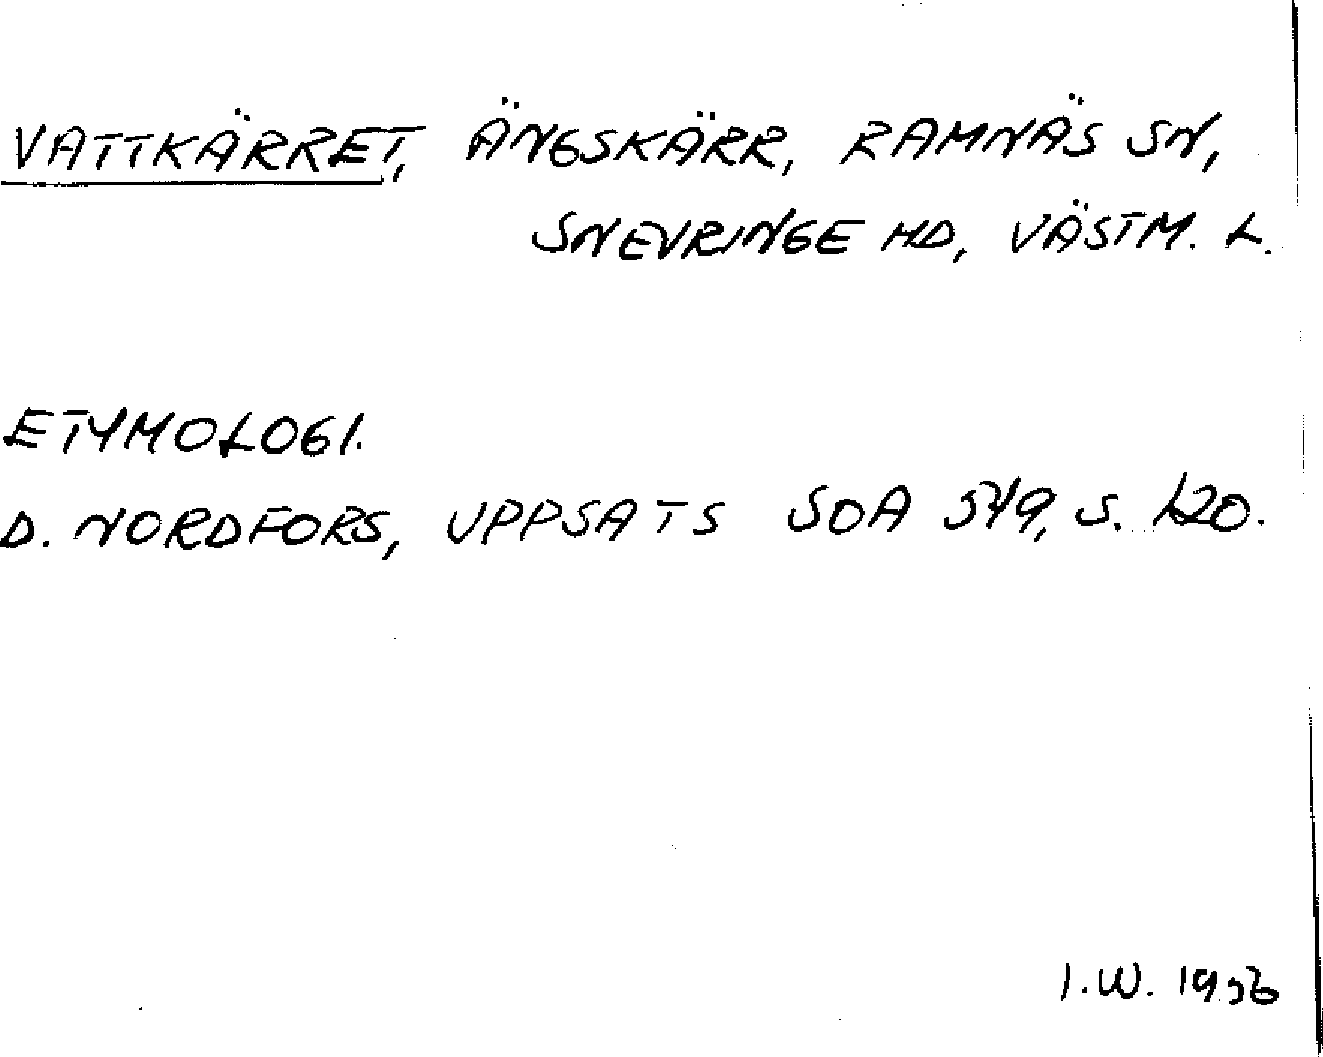 VATTKÄRRET, ÄNGSKÄRR, RAMNÄS SN,
SNEVRINGE HD, VÄSTM. L.
ETYMOLOGI.
D. NORDFORS, UPPSATS SOA 549, S. 120.
I.W. 1956